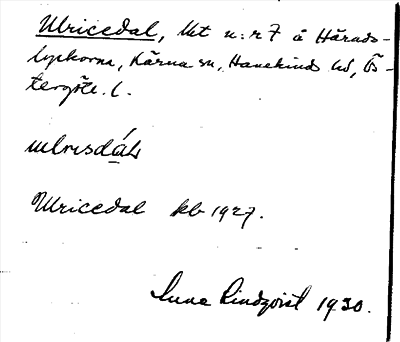 Ulricedal, lht n:r 7 å Härads-
lyckorna, Kärna sn, Hanekinds hd, Ös-
tergötl. l.
ulrisdáls
Ulricedal kb 1927.
Sune Lindqvist 1930.